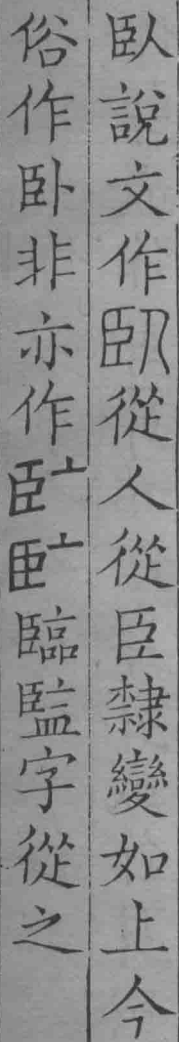 臥說文作臥從人從臣隸變如上今
俗作卧非亦作臨監字從之